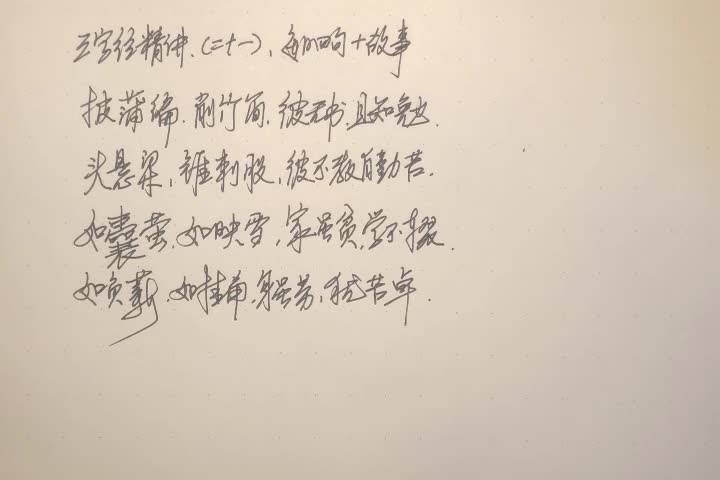 三字经精讲.(二十一),每四句十故事
披蒲编.削竹简,彼无书,且知勉.
头悬梁,锥刺股,彼不教,自勤苦.
如囊萤,如映雪,家虽贫,学不辍.
如负薪.如挂角.身虽劳,犹苦卓.